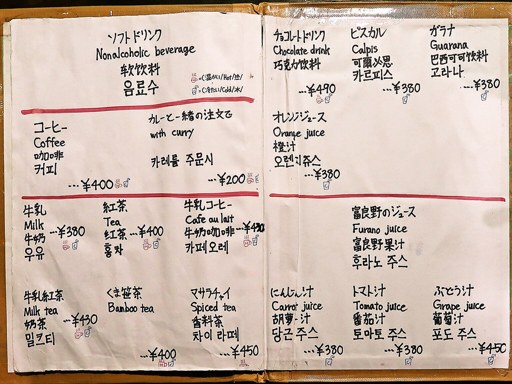 ソフトドリンク
Nonalcoholic beverage
软饮料
음료수
コーヒー
Coffee
咖啡
커피
...¥400
カレーと一緒の注文で
with curry
카레를 주문시
...¥200
牛乳
Milk
牛奶
우유
...¥380
紅茶
Tea
紅茶
홍차
...¥400
牛乳コーヒー
Cafe au lait
牛奶咖啡
카페오레
...¥430
牛乳紅茶
Milk tea
奶茶
밀크티
...¥430
くま笹茶
Banboo tea
...¥400
マサラチャイ
Spiced tea
香料茶
차이 라떼
...¥450
チョコレートドリンク
Chocolate drink
巧克力饮料
...¥490
ピスカル
Calpis
可爾必思
카르피스
...¥380
ガラナ
Guarana
巴西可可饮料
고라나
...¥380
オレンジジュース
Orange juice
橙汁
오렌지 쥬스
...¥380
富良野のジュース
Furano juice
富良野果汁
후라노 주스
にんじん汁
Carrot juice
胡萝卜汁
당근 주스
...¥380
トマト汁
Tomato juice
番茄汁
토마토 주스
...¥380
ぶどう汁
Grape juice
葡萄汁
포도 주스
...¥450